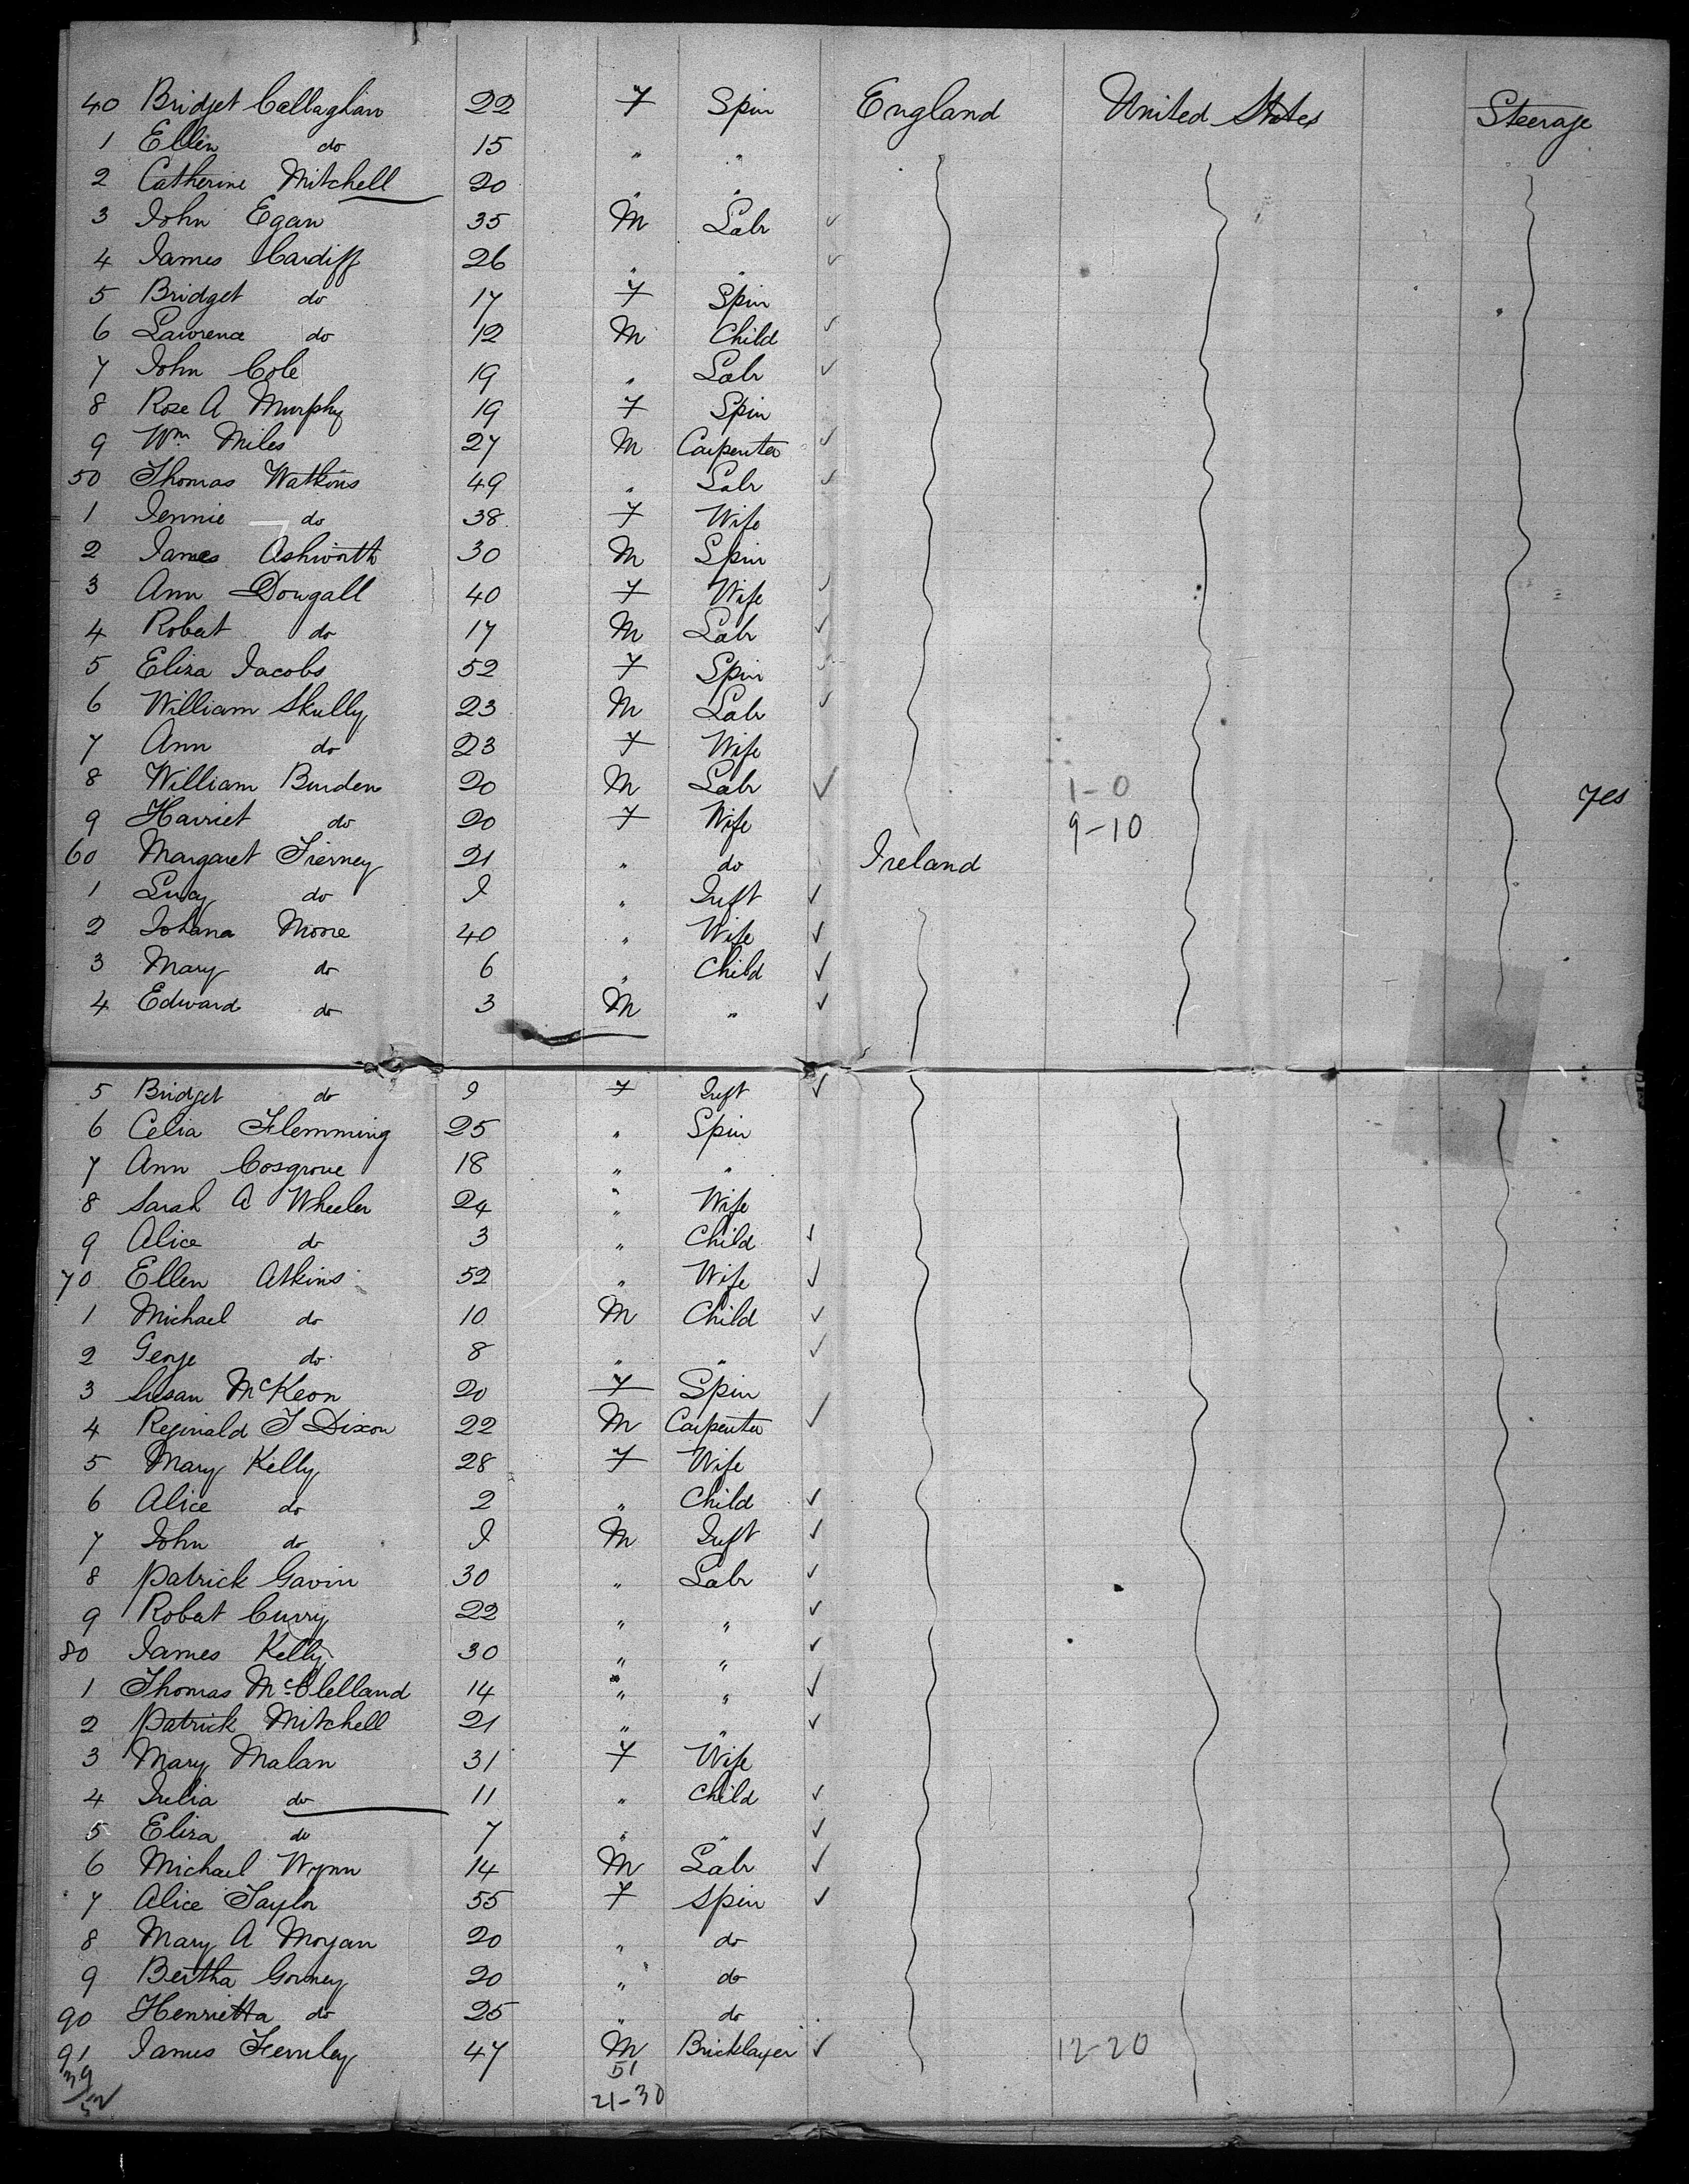 40 Bridget Callaghan 22 F Spin England United States Steerage
1 Ellen do 15 " "
2 Catherine Mitchell 20 " "
3 John Egan 35 M Labr ✓
4 James Cardiff 26 " " ✓
5 Bridget do 17 F Spin
6 Lawrence do 12 M Child ✓
7 John Cole 19 " Labr ✓
8 Rose A Murphy 19 F Spin
9 Wm Miles 27 M Carpenter ✓
50 Thomas Watkins 49 " Labr ✓
1 Jennie do 38 F Wife
2 James Ashworth 30 M Spin
3 Ann Dougall 40 F Wife ✓
4 Robert do 17 M Labr ✓
5 Eliza Jacobs 52 F Spin ✓
6 William Skully 23 M Labr ✓
7 Ann do 23 F Wife
8 William Burden 20 M Labr ✓ 1-0 yes
9 Harriet do 20 F Wife 9-10
60 Margaret Tierney 21 " do Ireland
1 Lucy do I " Inft ✓
2 Johana Moore 40 " Wife ✓
3 Mary do 6 " Child ✓
4 Edward do 3 M " ✓
5 Bridget do I F Inft ✓
6 Celia Flemming 25 " Spin
7 Ann Cosgrove 18 " "
8 Sarah A Wheeler 24 " Wife
9 Alice do 3 " Child ✓
70 Ellen Atkins 52 " Wife ✓
1 Michael do 10 M Child ✓
2 George do 8 " " ✓
3 Susan McKeon 20 F Spin
4 Reginald J Dixon 22 M Carpenter ✓
5 Mary Kelly 28 F Wife
6 Alice do 2 " Child ✓
7 John do I M Inft ✓
8 Patrick Gavin 30 " Labr ✓
9 Robert Curry 22 " " ✓
80 James Kelly 30 " " ✓
1 Thomas McClelland 14 " " ✓
2 Patrick Mitchell 21 " " ✓
3 Mary Malan 31 F Wife
4 Julia do 11 " Child ✓
5 Eliza do 7 " " ✓
6 Michael Wynn 14 M Labr ✓
7 Alice Taylor 55 F Spin ✓
8 Mary A Moyan 20 " do
9 Bertha Gorney 20 " do
90 Henrietta do 25 " do
91 James Fernley 47 M Bricklayer ✓ 12-20
39/52 51
21-30